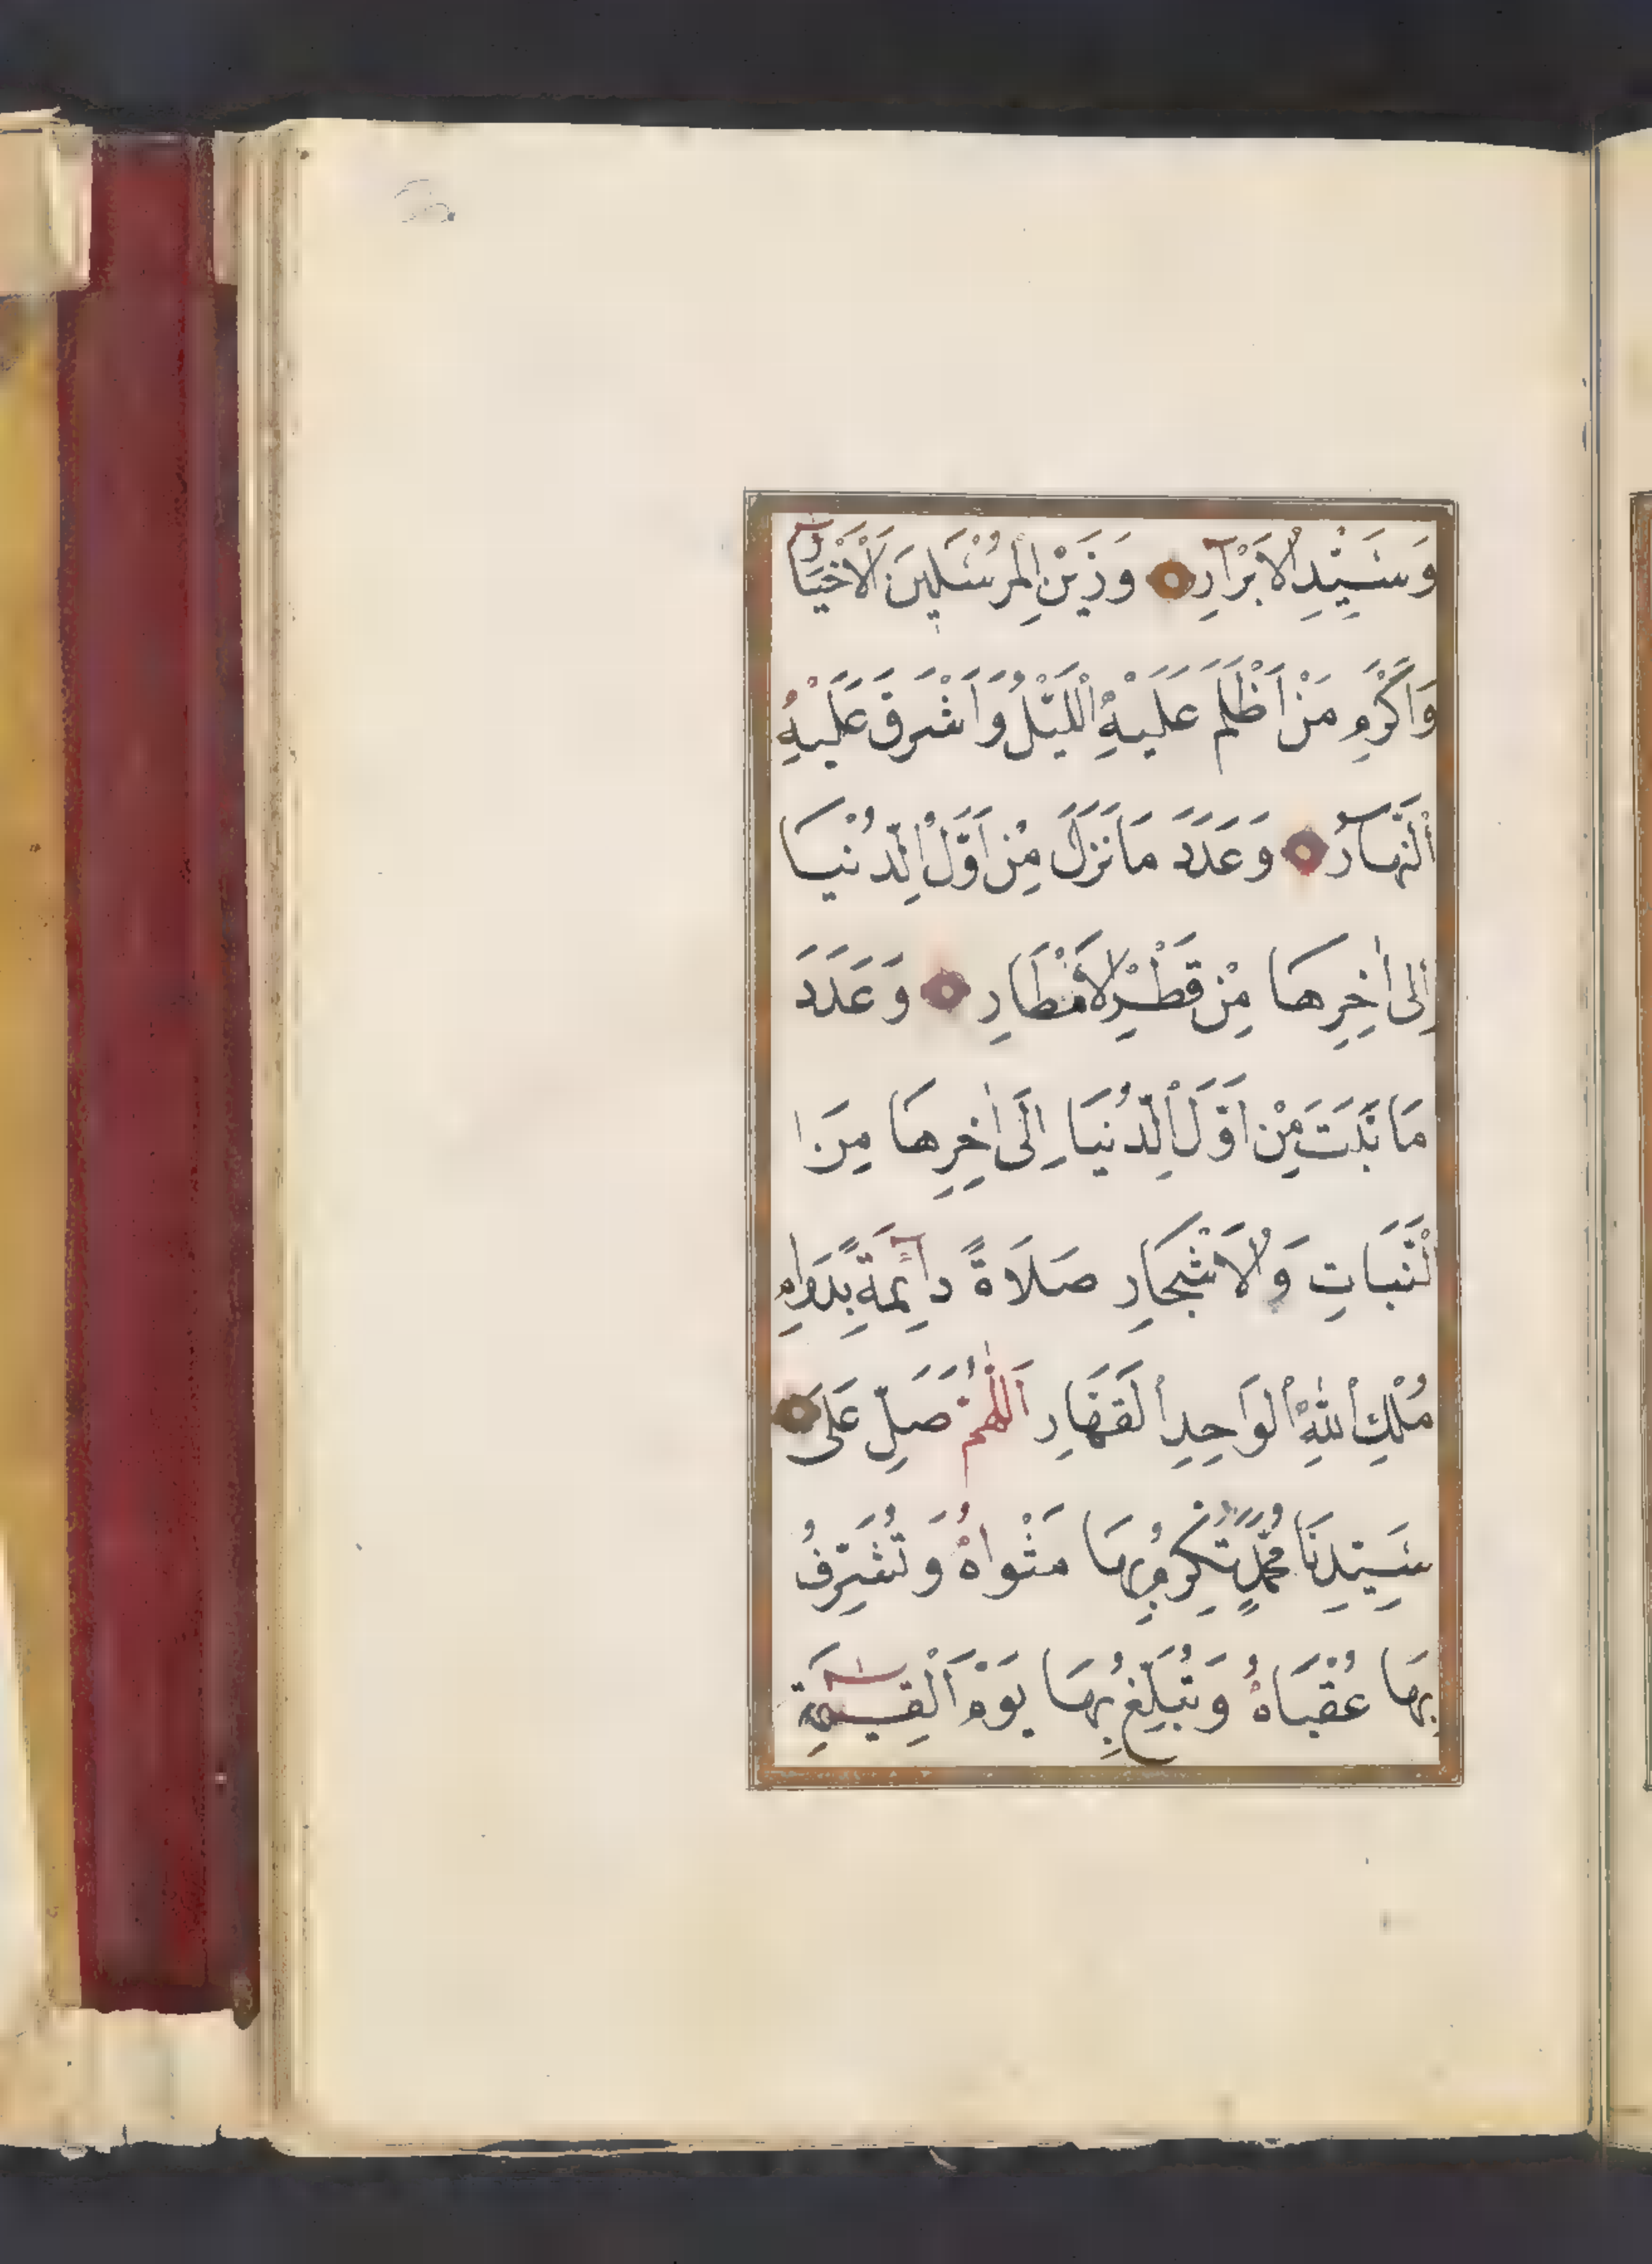 وَسَيِّدِ الْاَبْرَارِ وَزَيْنِ الْمُرْسَلِينَ الْاَخْيَارِ
وَاَكْرَمِ مَنْ اَظْلَمَ عَلَيْهِ الَّليْلُ وَاَشْرَقَ عَلَيْهِ
النَّهَارُ وَعَدَدَ مَا نَزَلَ مِنْ اَوَّلِ الدُّنْيَا
اِلٰى اٰخِرِهَا مِنْ قَطْرِ الْاَمْطَارِ وَعَدَدَ
مَا نَبَتَ مِنْ اَوَّلِ الدُّنْيَا اِلَى اٰخِرِهَا مِنَ ا
لنَّبَاتِ وَالْاَشْجَارِ صَلَاةً دَائِمَةً بِدَوَامِ
مُلْكِ اللّٰهِ الْوَاحِدِ الْقَهَّارِ اَللّٰهُمَّ صَلِّ عَلَى
سَيِّدِنَا مُحَمَّدٍ تُكْرِمُ بِهَا مَثْوَاهُ وَتُشَرِّفُ
بِهَا عُقْبَاهُ وَتُبَلِّغُ بِهَا يَوْمَ الْقِيٰمَةِ